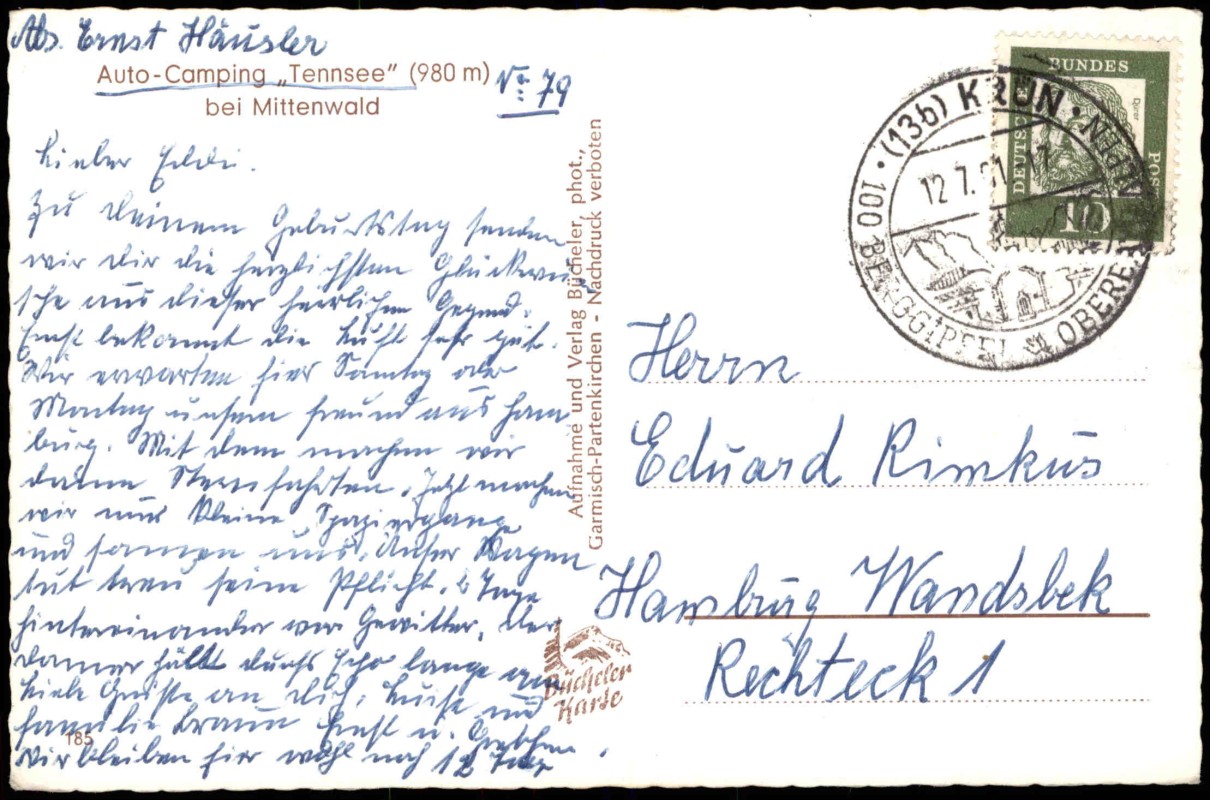 Abs. Ernst Häusler
Auto-Camping „Tennsee" (980 m) Nr. 79
bei Mittenwald
Lieber Eddi.
Zu Deinem Geburtstag senden
wir Dir die herzlichsten Glückwün
sche aus dieser herrlichen Gegend.
Ernst bekommt die Luft sehr gut.
Wir erwarten hier Samtag oder
Montag unsern Freund aus Ham
burg. Mit dem machen wir
dann Sternfahrten. Jetzt machen
wir nur kleine Spaziergänge
und sonnen uns. Unser Wagen
tut treu seine Pflicht. 6 Tage
hintereinander war Gewitter. Der
Donner hält durchs Echo lange an
Viele Grüße an Dich, Luise und
Familie Braun Ernst u.
Wir bleiben hier wohl noch 12 Tage
185
Aufnahme und Verlag Bücheler, phot.,
Garmisch-Partenkirchen - Nachdruck verboten
Bücheler
Karte
(13b) KRÜN
12.7.61-17
100 BERGGIPFEL
DEUTSCHE
BUNDES
POST
Dürer
10
Herrn
Eduard Rimkus
Hamburg Wandsbek
Rechteck 1